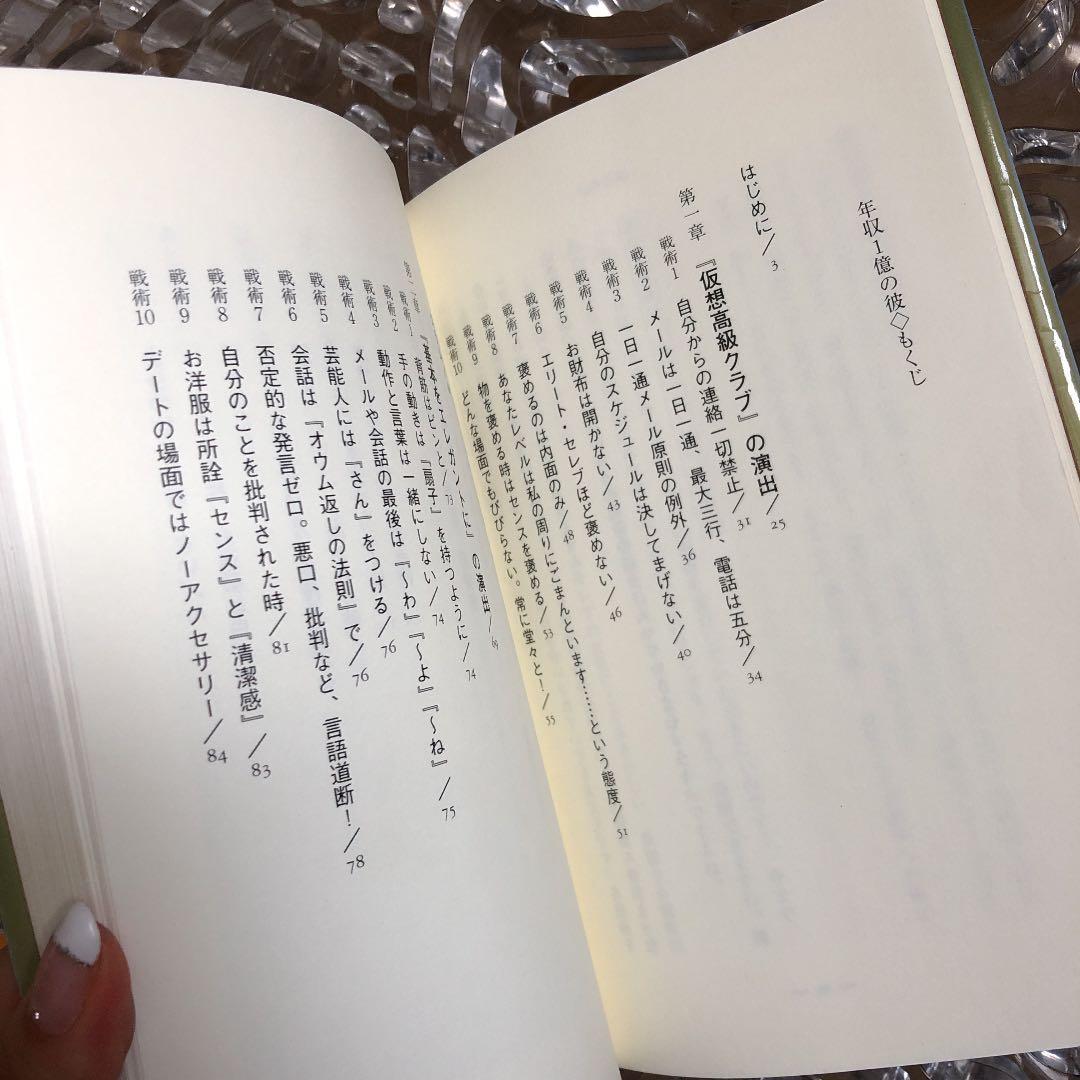 年収1億の彼◇もくじ
はじめに/3
第一章 『仮想高級クラブ』の演出/25
戦術1 自分からの連絡一切禁止/31
戦術2 メールは一日一通、最大三行、電話は五分/34
戦術3 一日一通メール原則の例外/36
戦術4 自分のスケジュールは決してまげない/40
戦術5 お財布は開かない/43
戦術6 エリート・セレブほど褒めない/46
戦術7 褒めるのは内面のみ/48
戦術8 あなたレベルは私の周りにごまんといます……という態度/51
戦術9 物を褒める時はセンスを褒める/53
戦術10 どんな場面でもびびらない。常に堂々と!/55
第二章 『基本をエレガントに』の演出/69
戦術1 背筋はピンと/73
戦術2 手の動きは『扇子』を持つように/74
戦術3 動作と言葉は一緒にしない/74
戦術4 メールや会話の最後は『〜わ』『〜よ』『〜ね』/75
戦術5 芸能人には『さん』をつける/76
戦術6 会話は『オウム返しの法則』で/76
戦術7 否定的な発言ゼロ。悪口、批判など、言語道断!/78
戦術8 自分のことを批判された時/81
戦術9 お洋服は所詮『センス』と『清潔感』/83
戦術10 デートの場面ではノーアクセサリー/84